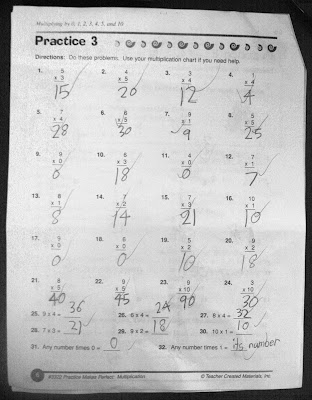 Multiplying by 0, 1, 2, 3, 4, 5, and 10
Practice 3
Directions: Do these problems. Use your multiplication chart if you need help.
1. 5 x 3 15 2. 4 x 5 20 3. 3 x 4 12 4. 1 x 4 4
5. 7 x 4 28 6. 6 x 5 30 7. 9 x 1 9 8. 5 x 5 25
9. 9 x 0 0 10. 6 x 3 18 11. 4 x 0 0 12. 7 x 1 7
13. 8 x 1 8 14. 7 x 2 14 15. 7 x 3 21 16. 10 x 1 10
17. 5 x 0 0 18. 6 x 0 0 19. 5 x 2 10 20. 9 x 2 18
21. 8 x 5 40 22. 9 x 5 45 23. 9 x 10 90 24. 3 x 10 30
25. 9 x 4 = 36 26. 6 x 4 = 24 27. 8 x 4 = 32
28. 7 x 3 = 21 29. 9 x 2 = 18 30. 10 x 1 = 10
31. Any number times 0 = 0 32. Any number times 1 = its number
#3322 Practice Makes Perfect: Multiplication © Teacher Created Materials, Inc.